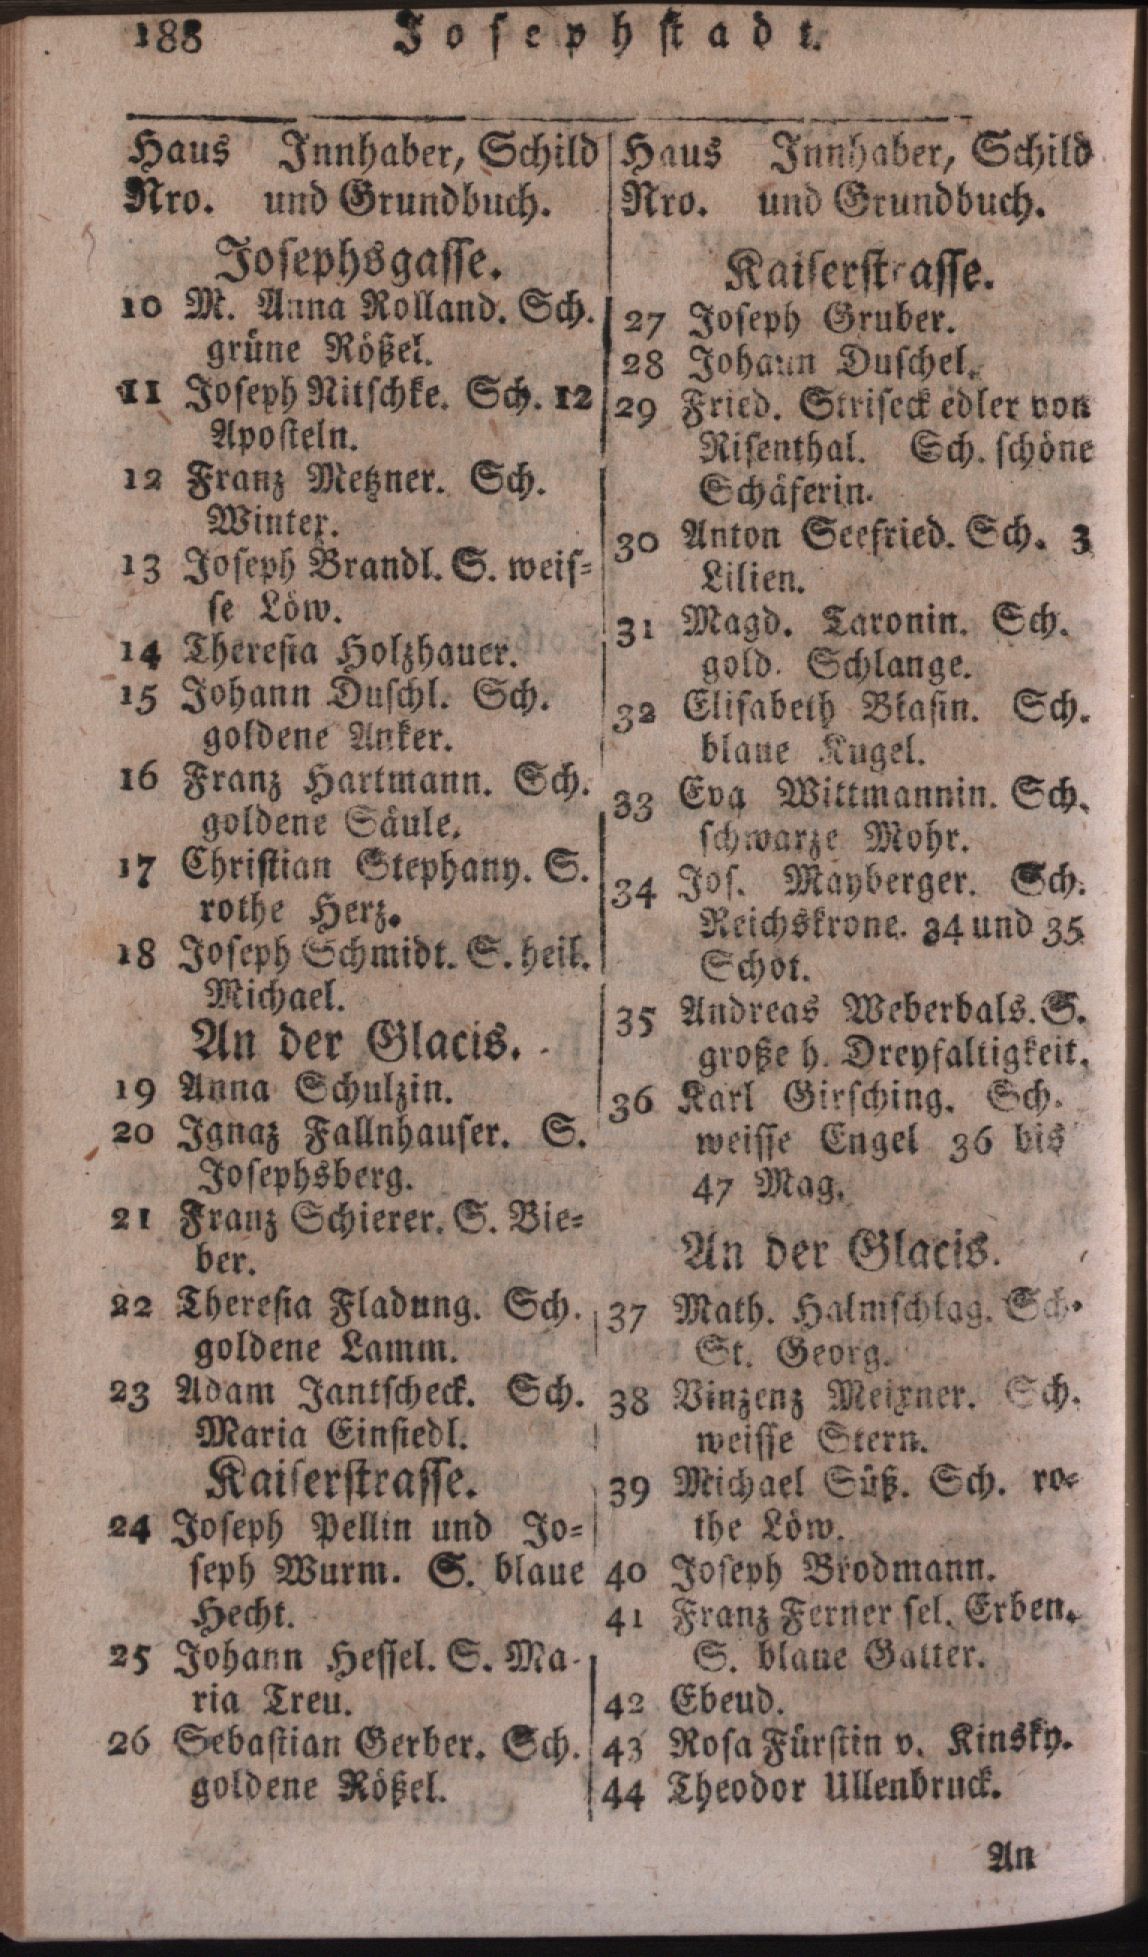 188 Josephstadt.
Haus Innhaber, Schild
Nro. und Grundbuch.
Josephsgasse.
10 M. Anna Rolland. Sch.
grüne Rößel.
11 Joseph Nitschke. Sch. 12
Aposteln.
12 Franz Metzner. Sch.
Winter.
13 Joseph Brandl. S. weis-
se Löw.
14 Theresia Holzhauer.
15 Johann Duschl. Sch.
goldene Anker.
16 Franz Hartmann. Sch.
goldene Säule.
17 Christian Stephany. S.
rothe Herz.
18 Joseph Schmidt. S. heil.
Michael.
An der Glacis.
19 Anna Schulzin.
20 Ignaz Fallnhauser. S.
Josephsberg.
21 Franz Schierer. S. Bie-
ber.
22 Theresia Fladung. Sch.
goldene Lamm.
23 Adam Jantscheck. Sch.
Maria Einsiedl.
Kaiserstrasse.
24 Joseph Pellin und Jo-
seph Wurm. S. blaue
Hecht.
25 Johann Hessel. S. Ma-
ria Treu.
26 Sebastian Gerber. Sch.
goldene Rößel.
Haus Innhaber, Schild
Nro. und Grundbuch.
Kaiserstrasse.
27 Joseph Gruber.
28 Johann Duschel.
29 Fried. Striseck edler von
Risenthal. Sch. schöne
Schäferin.
30 Anton Seefried. Sch. 3
Lilien.
31 Magd. Taronin. Sch.
gold. Schlange.
32 Elisabeth Blasin. Sch.
blaue Kugel.
33 Eva Wittmannin. Sch.
schwarze Mohr.
34 Jos. Mayberger. Sch.
Reichskrone. 34 und 35
Schot.
35 Andreas Weberbals. S.
große h. Dreyfaltigkeit.
36 Karl Girsching. Sch.
weisse Engel 36 bis
47 Mag.
An der Glacis.
37 Math. Halmschlag. Sch.
St. Georg.
38 Vinzenz Meixner. Sch.
weisse Stern.
39 Michael Süß. Sch. ro-
the Löw.
40 Joseph Brodmann.
41 Franz Ferner sel. Erben.
S. blaue Gatter.
42 Ebend.
43 Rosa Fürstin v. Kinsky.
44 Theodor Ullenbruck.
An